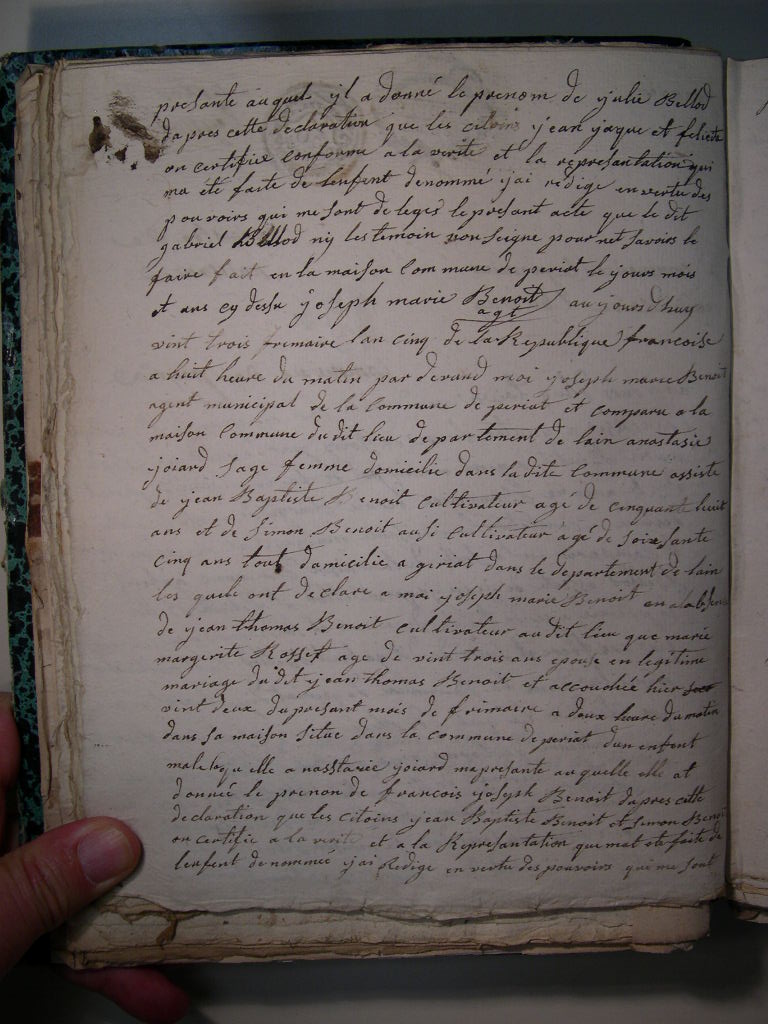 presante auquel yl a donné le prenom de julie Bellod
dapres cette declaration que les citoins jean jaque et felicite
on certifie conforme a la verite et la representation qui
ma ete faite de lenfent denommé jai redige en vertu des
pouvoirs qui me sont deleges le presant acte que le dit
gabriel Bellod ny les temoin non seigne pour net savoirs le
faire fait en la maison Commune de periat le jours mois
et ans cy dessu joseph marie Benoit agt au jours dhuy
vint trois frimaire lan cinq de la Republique francoise
a huit heure du matin par devand moi joseph marie Benoit
agent municipal de la Commune de periat et comparu a la
maison Commune du dit lieu departement de lain anastasie
joiard sage femme domicilie dans la dite Commune assiste
de jean Baptiste Benoit Cultivateur agé de cinquante huit
ans et de Simon Benoit ausi Cultivateur agé de soixsante
cinq ans tout domicilie a giriat dans le departement de lain
les quele ont declare a moi joseph marie Benoit en
de jean thomas Benoit Cultivateur audit lieu que marie
margerite Rosset age de vint trois ans epouse en legitime
mariage du dit jean thomas Benoit et accouchée hier
vint deux du presant mois de frimaire a deux heure du matin
dans sa maison situe dans la commune de periat dun enfent
male elle a nasstasiee joiard me presante au quelle elle at
donnée le prenon de francois joseph Benoit dapres cette
declaration que les citoins jean Baptiste Benoit et Simon Benoit
on certifie a la verité et a la Representation que mat ete faite de
lenfent denommee jai Redige en vertu des pouvoirs qui me sont